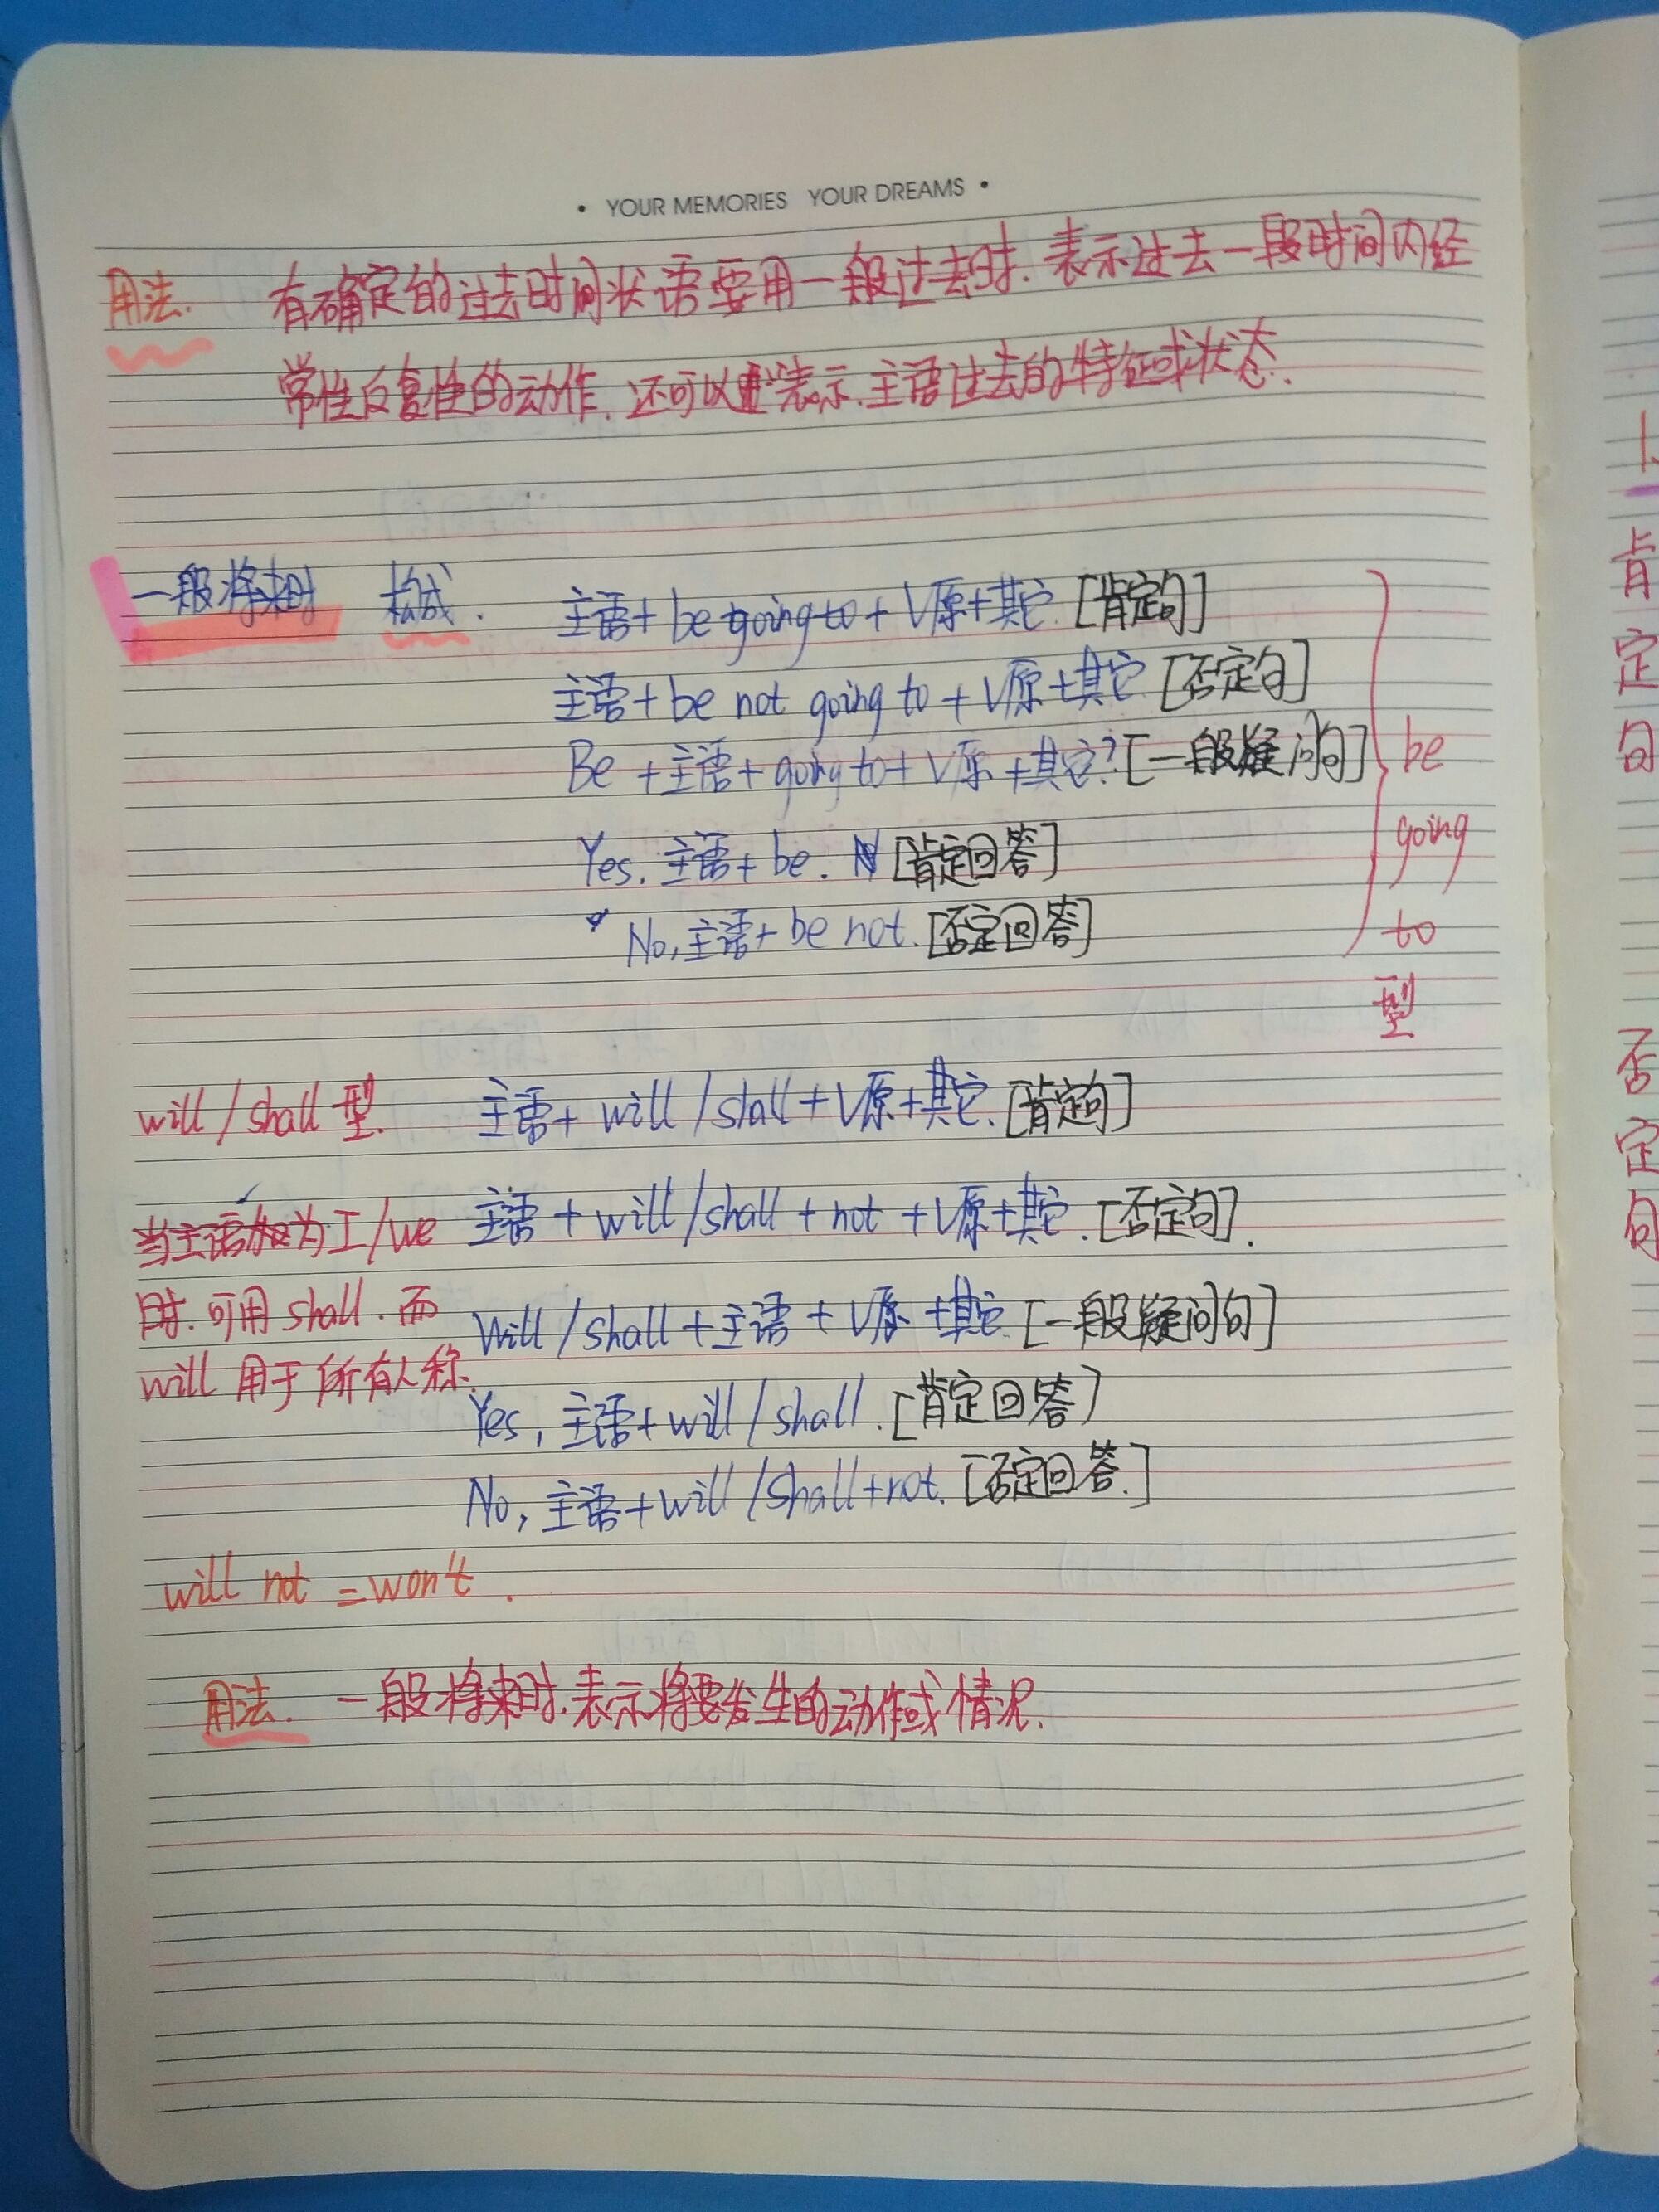 • YOUR MEMORIES YOUR DREAMS •
用法. 有确定的过去时间状语要用一般过去时. 表示过去一段时间内经
常性反复性的动作. 还可以表示.主语过去的特征或状态.
一般将来时 构成. 主语+ be going to + V原+其它. [肯定句]
主语+be not going to + V原+其它. [否定句]
Be +主语+going to+ V原 +其它? [一般疑问句]
Yes. 主语+ be. [肯定回答]
No,主语+ be not. [否定回答]
be
going
to
型
will / shall 型. 主语+ will / shall + V原+其它. [肯定句]
当主语为 I/we 主语 + will /shall + not + V原+其它. [否定句].
时. 可用 shall. 而 Will /shall +主语 + V原 +其它 [一般疑问句]
will 用于所有人称.
Yes, 主语+ will / shall. [肯定回答]
No, 主语+will /shall+not. [否定回答.]
will not =won't.
用法. 一般将来时.表示将要发生的动作或情况.
1.
肯
定
句
否
定
句